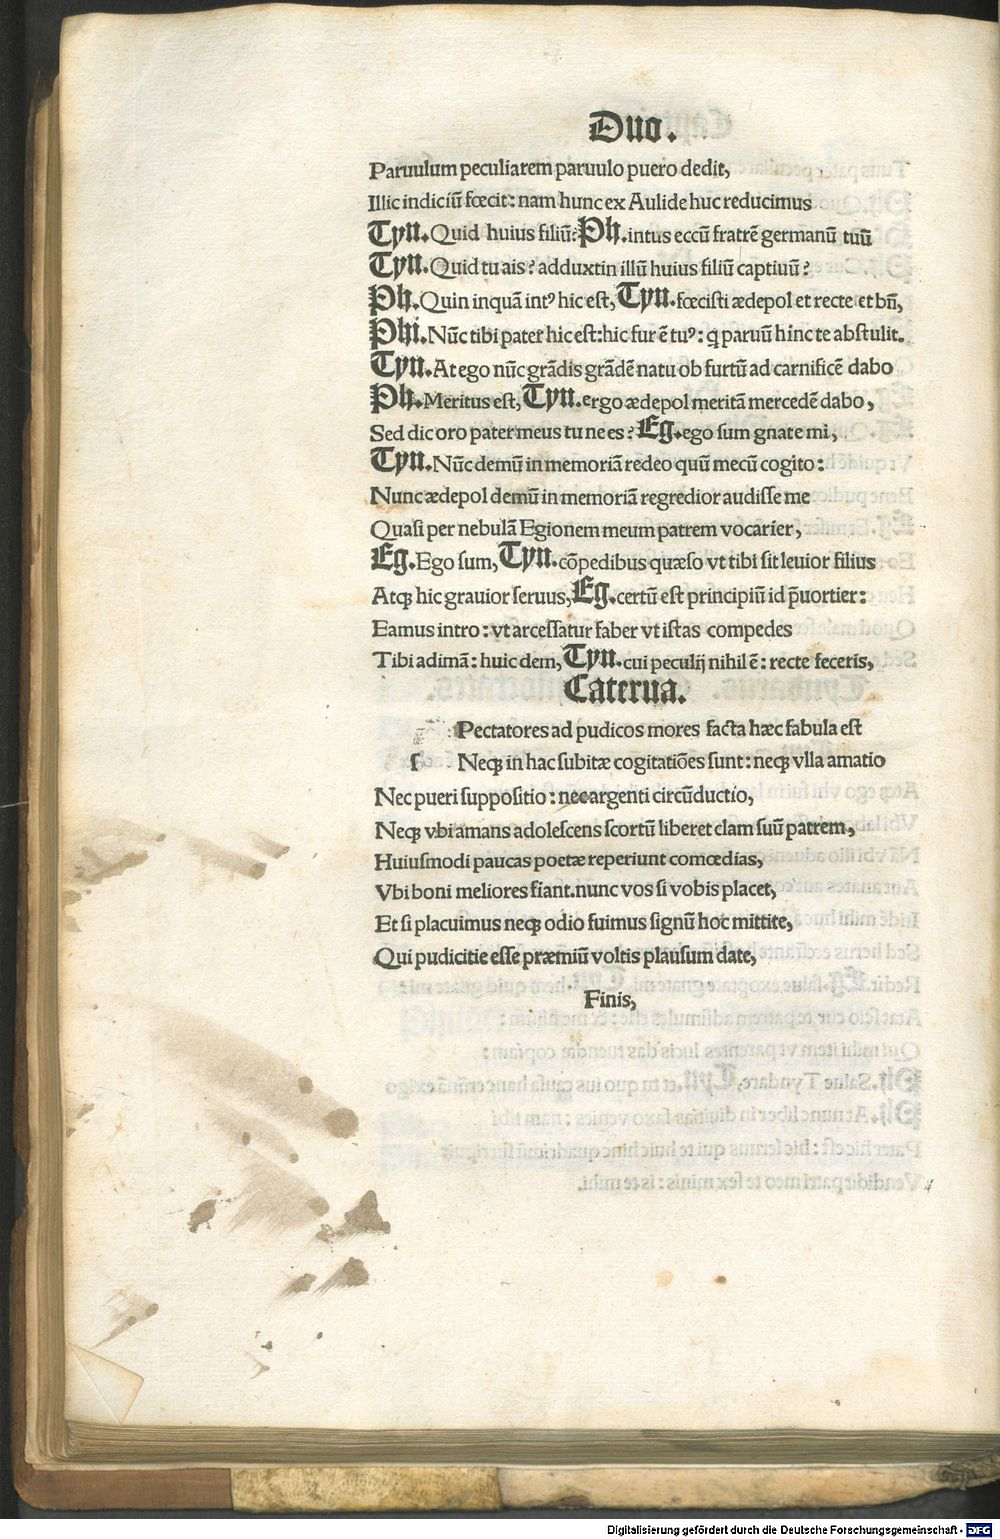 Duo.
Paruulum peculiarem paruulo puero dedit,
Illic indiciū fœcit: nam hunc ex Aulide huc reducimus
Tyn. Quid huius filiū? Ph. intus eccū fratrē germanū tuū
Tyn. Quid tu ais? adduxtin illū huius filiū captiuū?
Ph. Quin inquā intꝰ hic est, Tyn. fœcisti ædepol et recte et bñ,
Phi. Nūc tibi pater hic est: hic fur ē tuꝰ: q̄ paruū hinc te abstulit.
Tyn. At ego nūc grādis grādē natu ob furtū ad carnificē dabo
Ph. Meritus est, Tyn. ergo ædepol meritā mercedē dabo,
Sed dic oro pater meus tu ne es? Eg. ego sum gnate mi,
Tyn. Nūc demū in memoriā redeo quū mecū cogito:
Nunc ædepol demū in memoriā regredior audisse me
Quasi per nebulā Egionem meum patrem vocarier,
Eg. Ego sum, Tyn. cōpedibus quæso vt tibi sit leuior filius
Atqꝫ hic grauior seruus, Eg. certū est principiū id p̄uortier:
Eamus intro: vt arcessatur faber vt istas compedes
Tibi adimā: huic dem, Tyn. cui peculij nihil ē: recte feceris,
Caterua.
Pectatores ad pudicos mores facta hæc fabula est
ſ Neqꝫ in hac subitæ cogitatiōes sunt: neqꝫ vlla amatio
Nec pueri suppositio: nec argenti circūductio,
Neqꝫ vbi amans adolescens scortū liberet clam suū patrem,
Huiusmodi paucas poetæ reperiunt comœdias,
Vbi boni meliores fiant. nunc vos si vobis placet,
Et si placuimus neqꝫ odio fuimus signū hoc mittite,
Qui pudicitie esse præmiū voltis plausum date,
Finis,
Digitalisierung gefördert durch die Deutsche Forschungsgemeinschaft - DFG